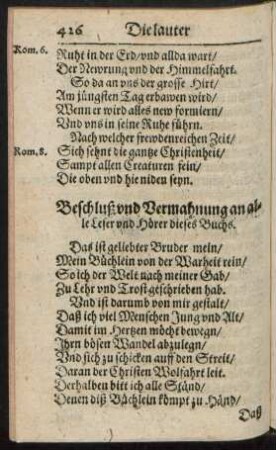 426 Die lauter
Rom. 6. Ruht in der Erd/vnd allda wart/
Der Newrung vnd der Himmelfahrt.
So da an vns der grosse Hirt/
Am jüngsten Tag erbawen wird/
Wenn er wird alles new formiern/
Vnd vns in seine Ruhe führn.
Nach welcher frewdenreichen Zeit/
Rom. 8. Sich sehnt die gantze Christenheit/
Sampt allen Creaturen fein/
Die oben vnd hie niden seyn.
Beschluß vnd Vermahnung an al-
le Leser vnd Hörer dieses Buchs.
Das ist geliebter Bruder mein/
Mein Büchlein von der Warheit rein/
So ich der Welt nach meiner Gab/
Zu Lehr vnd Trost geschrieben hab.
Vnd ist darumb von mir gestalt/
Daß ich viel Menschen Jung vnd Alt/
Damit im Hertzen möcht bewegn/
Ihrn bösen Wandel abzulegn/
Vnd sich zu schicken auff den Streit/
Daran der Christen Wolfahrt leit.
Derhalben bitt ich alle Ständ/
Denen diß Büchlein kömpt zu Händ/
Daß